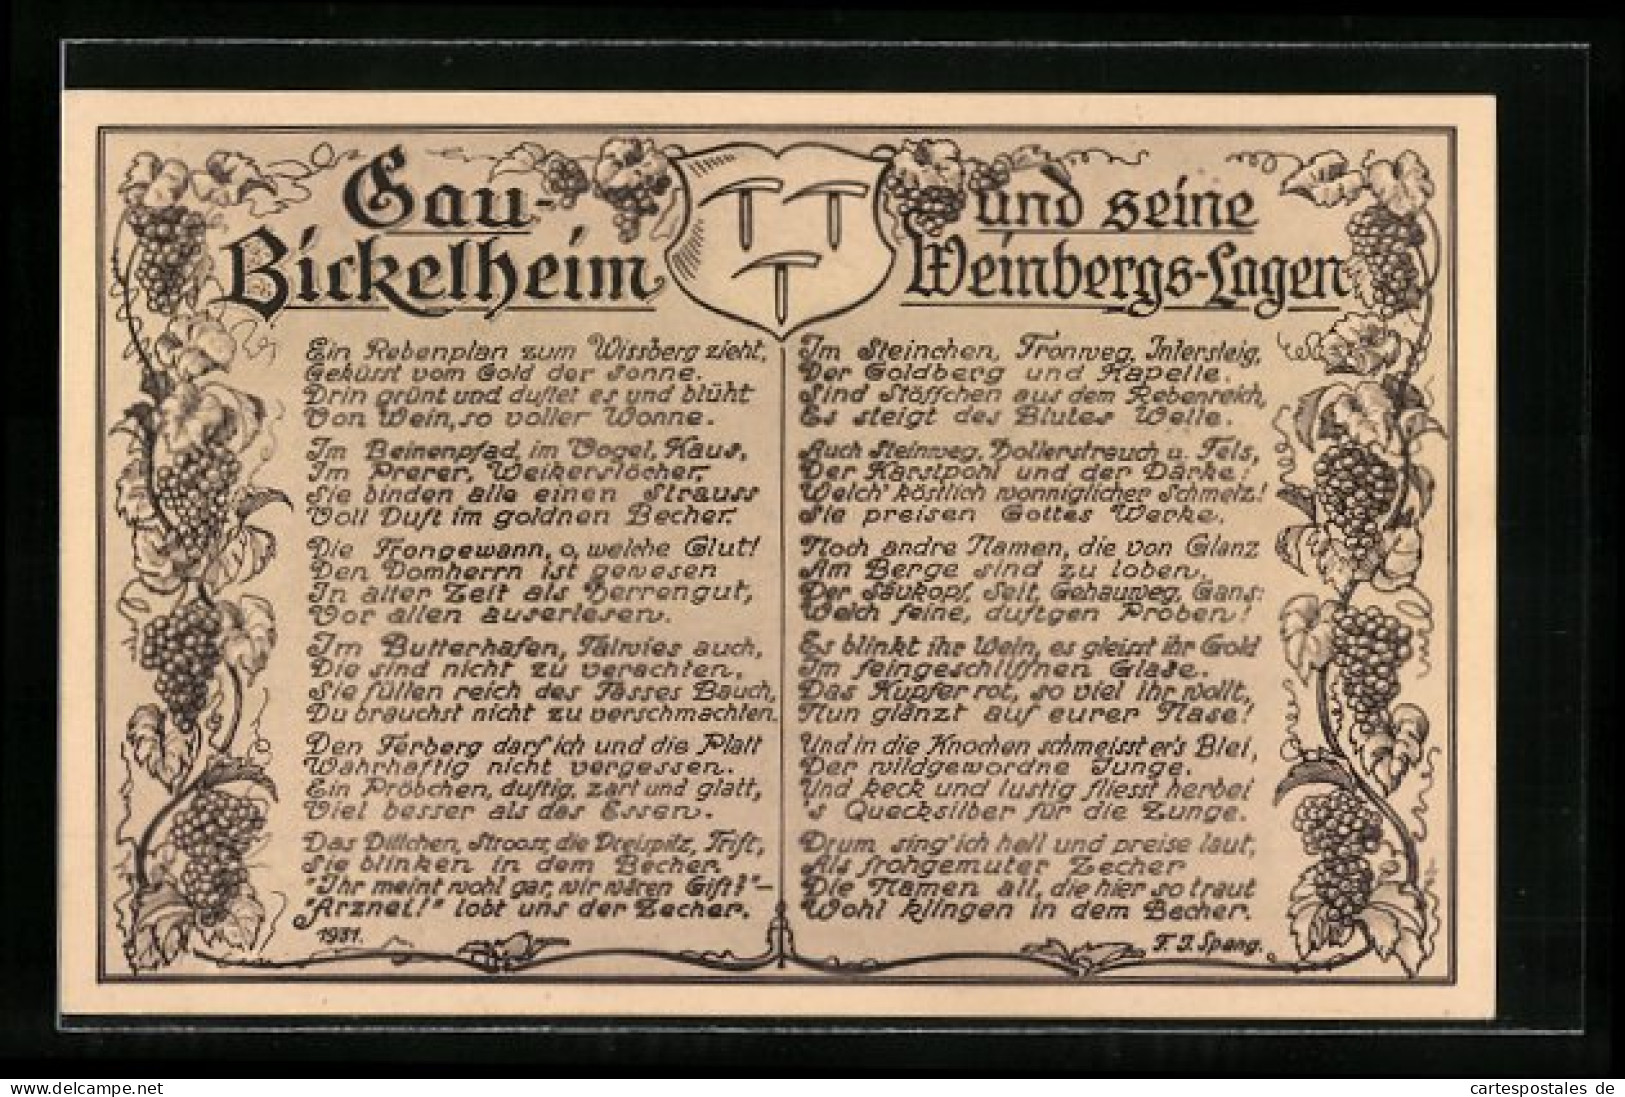 Gau-
Bickelheim
und seine
Weinbergs-Lagen
Ein Rebenplan zum Wissberg zieht,
Geküsst vom Gold der Sonne.
Drin grünt und duftet es und blüht
Von Wein, so voller Wonne.
Im Beinenpfad, im Vogel, Kaus,
Im Prerer, Weikerslöcher,
Sie binden alle einen Strauss
Voll Duft im goldnen Becher.
Die Frongewann, o, welche Glut!
Den Domherrn ist gewesen
In alter Zeit als Herrengut,
Vor allen auserlesen.
Im Butterhafen, Talwies auch,
Die sind nicht zu verachten,
Sie füllen reich des Fasses Bauch,
Du brauchst nicht zu verschmachten.
Den Ferberg darf ich und die Platt
Wahrhaftig nicht vergessen.
Ein Pröbchen, duftig, zart und glatt,
Viel besser als das Essen.
Das Dittchen, Stroost, die Dreispitz, Trift,
Sie blinken in dem Becher.
"Ihr meint wohl gar, wir wären Gift?"-
"Arznei!" lobt uns der Zecher.
1931.
Im Steinchen, Fronweg, Intersteig,
Der Goldberg und Kapelle.
Sind Stöffchen aus dem Rebenreich,
Es steigt des Blutes Welle.
Auch Steinweg, Hollerstrauch u. Fels,
Der Karstpohl und der Därke!
Welch' köstlich wonniglicher Schmelz!
Sie preisen Gottes Werke.
Noch andre Namen, die von Glanz
Am Berge sind zu loben,
Der Saukopf, Seit, Gehauweg, Gans:
Welch feine, duftgen Proben!
Es blinkt ihr Wein, es gleisst ihr Gold
Im feingeschliffnen Glase.
Das Kupfer rot, so viel ihr wollt,
Nun glänzt auf eurer Nase!
Und in die Knochen schmeisst er's Blei,
Der wildgewordne Junge.
Und keck und lustig fliesst herbei
's Quecksilber für die Zunge.
Drum sing' ich hell und preise laut,
Als frohgemuter Zecher
Die Namen all, die hier so traut
Wohl klingen in dem Becher.
F. J. Spang.
www.delcampe.net
cartespostales de